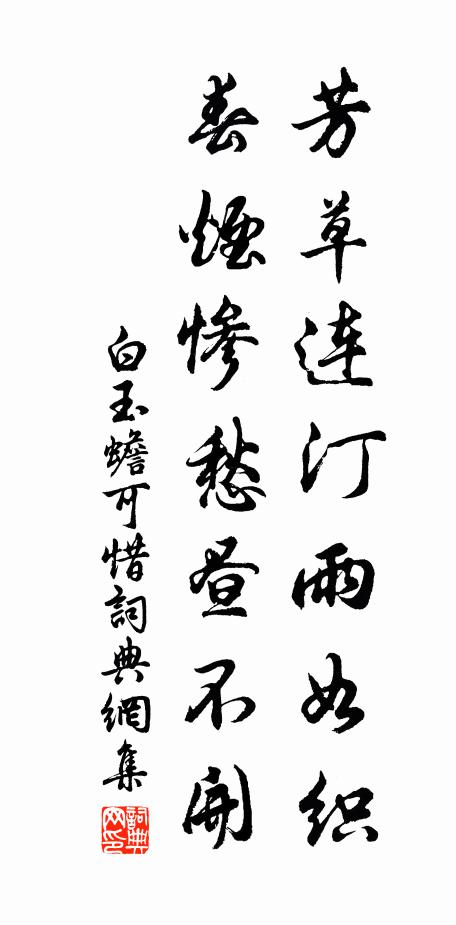 芳草连汀雨如织
春烟惨愁昼不开
白玉蟾可惜詞典網集
詞典网印